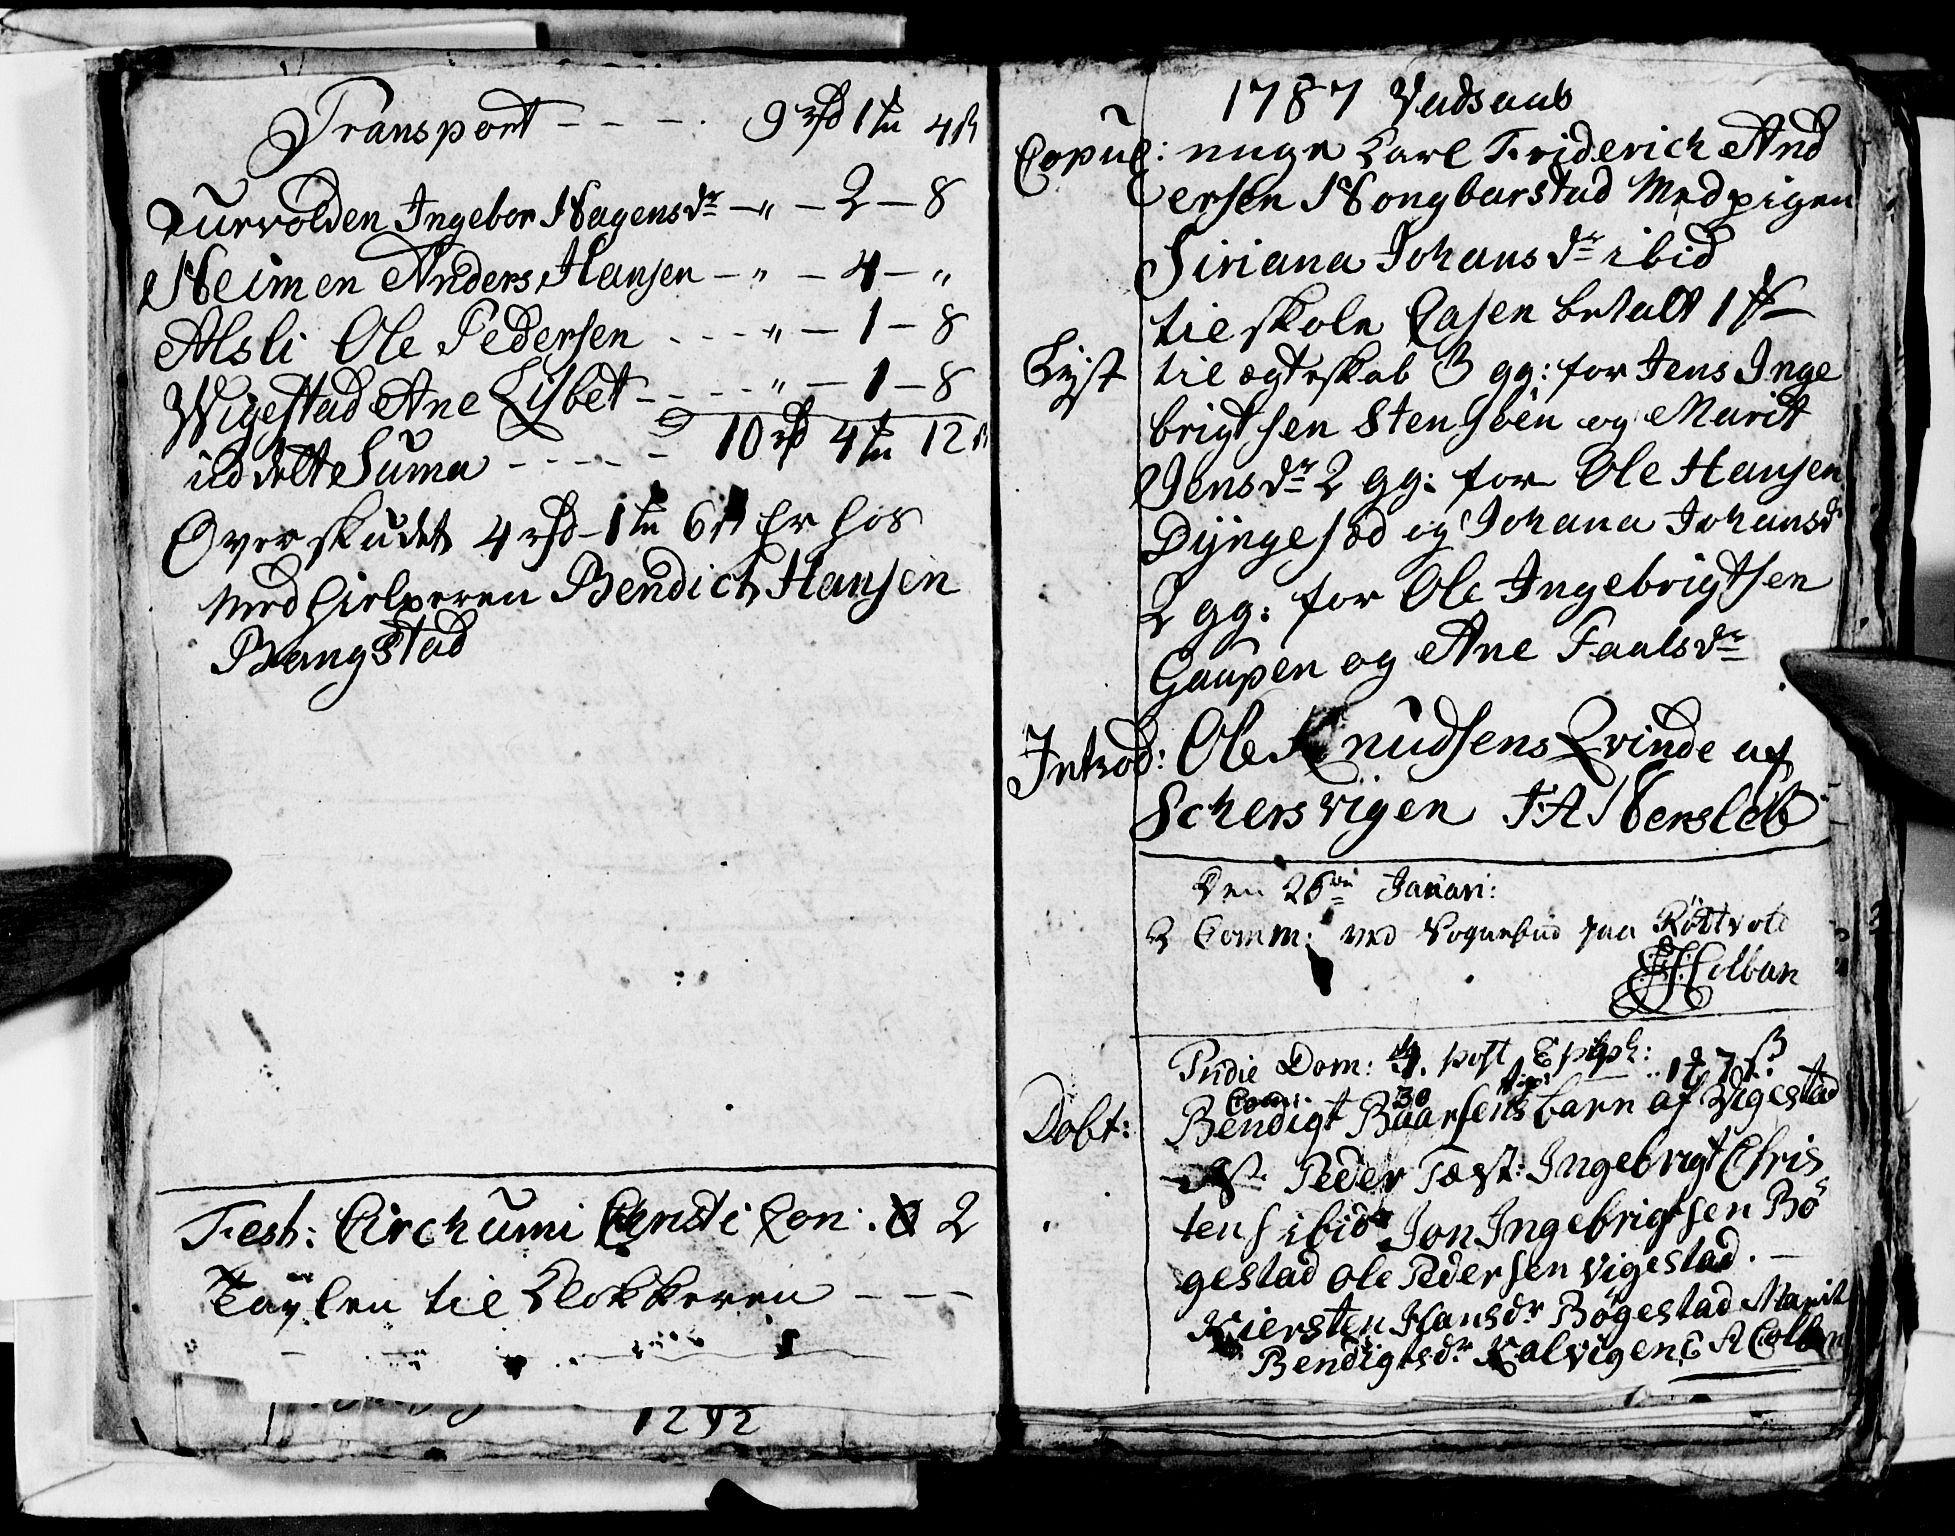 Transport - - - - 9 rd 1 m 4 ß
Curvolden Ingebor Hagens dr - " - 2 - 8
Heimen Anders Hansen - " - 4 - "
Alsli Ole Pedersen . - - " - 1 - 8
Wigestad Ane Lisbet - - - - " - 1 - 8
ud delt Suma - - - - - 10 rd 4 m 12 ß
Overskudet 4 rd - 1 m 6 ß Er hos
Medhielperen Bendict Hansen
Bangstad
Fest: Circhumi Con: 2
Tavlen til Klokkeren - - -
1292
1787 Vadsaas
Copul: unge Karl Friderich And
ersen Hongbarstad Med pigen
Siriana Johans dr ibid
til skole Casen betalt 1
Lyst til ægteskab 3 gg: for Jens Inge
brigtsen Stensöen og Marit
Jens dr 2 gg: for Ole Hansen
Dyngesød og Johana Johansd
2 gg: for Ole Ingebrigtsen
Gaupen og Ane Faals dr
Introd: Ole Knudsens Qvinde af
Schersvigen F A Hersleb
Den 26de Januari:
2 Comm: ved Sognebud paa Röttvold
Colban
Pridie Dom: 4. post Epiph:
Com: 30
Döbt: Bendigt Baarsens barn af Vigestad
Peder Test: Ingebrigt Chris
tens ibid Jon Ingebrigtsen Bö
gestad Ole Pedersen Vigestad. -
Kiersten Hansdr Bögestad Marit
Bendigtsdr Kalvigen E A Colban